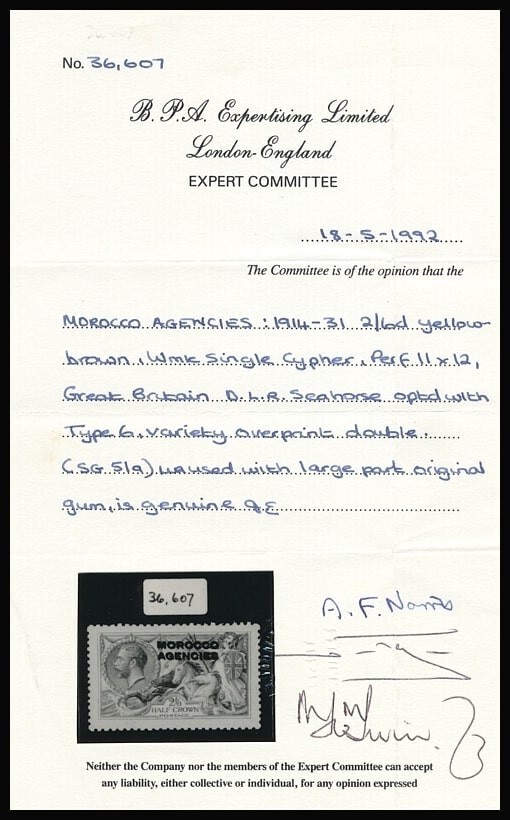 No. 36,607
B. P. A. Expertising Limited
London-England
EXPERT COMMITTEE
18-5-1992
The Committee is of the opinion that the
MOROCCO AGENCIES : 1914-31 2/6d yellow-
brown, Wmk Single Cypher, Perf 11 x 12,
Great Britain D.L.R. Seahorse optd with
Type 6, variety overprint double.
(SG 51a) unused with large part original
gum, is genuine
36,607
MOROCCO
AGENCIES
2/6
HALF CROWN
POSTAGE
A. F. Norris
Neither the Company nor the members of the Expert Committee can accept
any liability, either collective or individual, for any opinion expressed